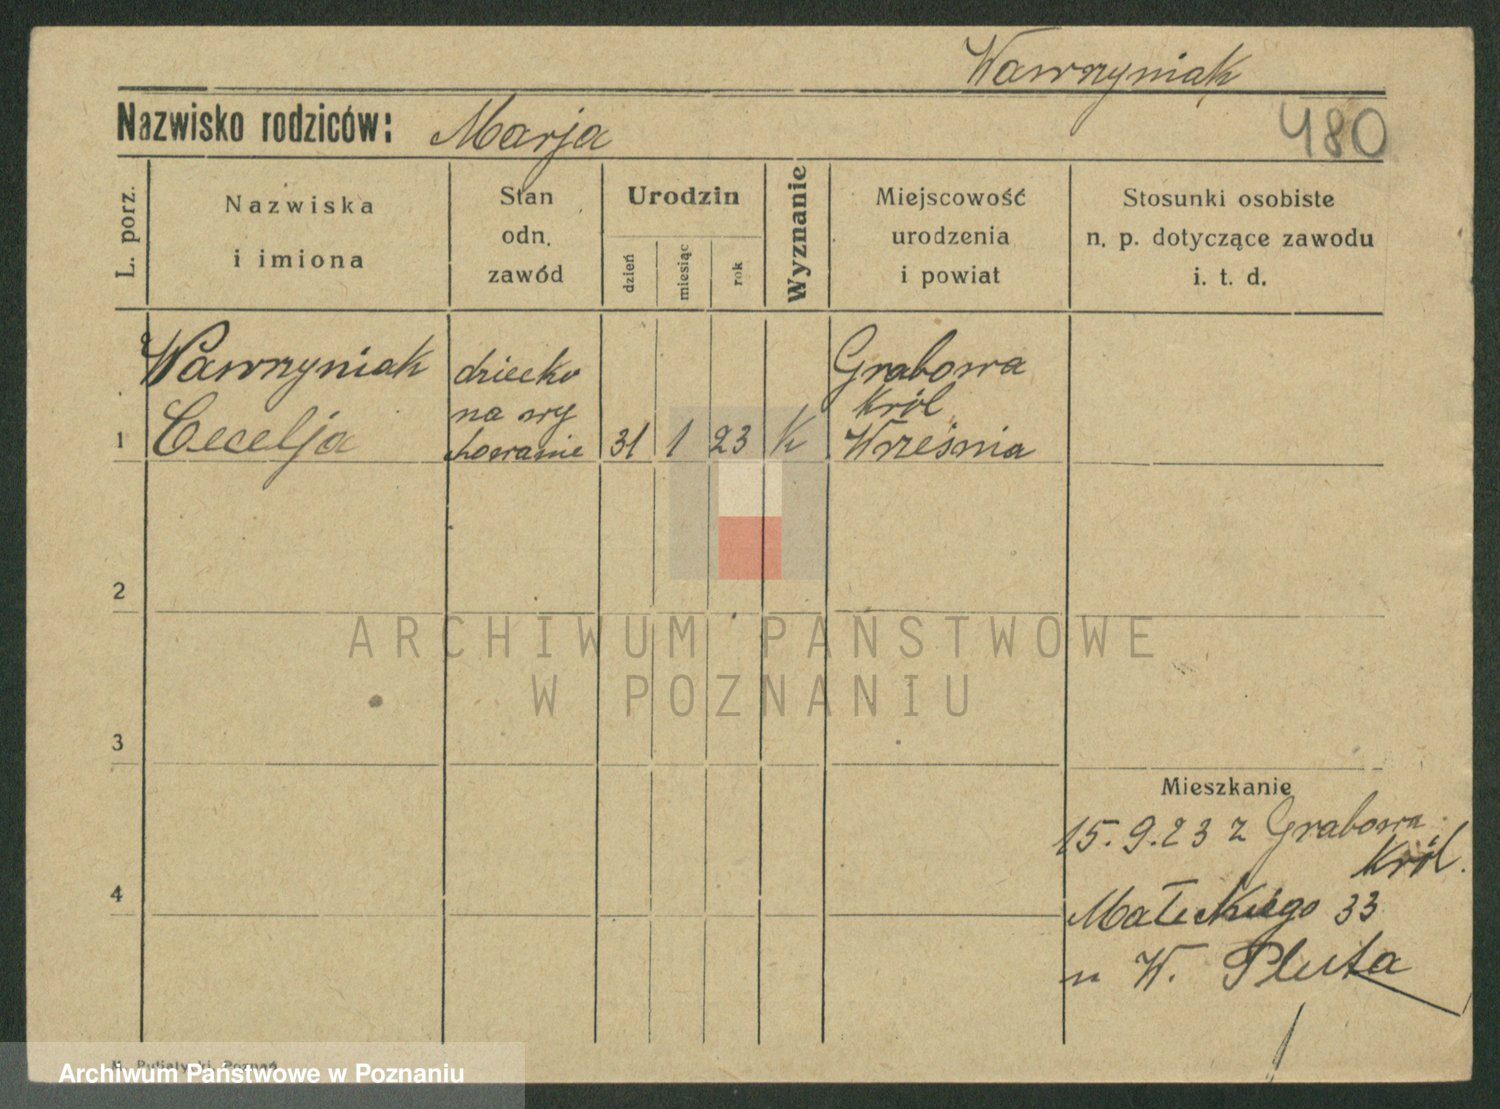 Wawrzyniak
Nazwisko rodziców: Marja
480
L. porz.
Nazwiska
i imiona
Stan
odn.
zawód
Urodzin
dzień
miesiąc
rok
Wyznanie
Miejscowość
urodzenia
i powiat
Stosunki osobiste
n. p. dotyczące zawodu
i. t. d.
1
Wawrzyniak
Cecelja
dziecko
na wy
chowanie
31
1
23
K
Grabowa
Król
Września
2
ARCHIWUM PAŃSTWOWE
W POZNANIU
3
Mieszkanie
15.9.23 z Grabowa
Król.
4
Małeckiego 33
u W. Pluta
Poznań
Archiwum Państwowe w Poznaniu